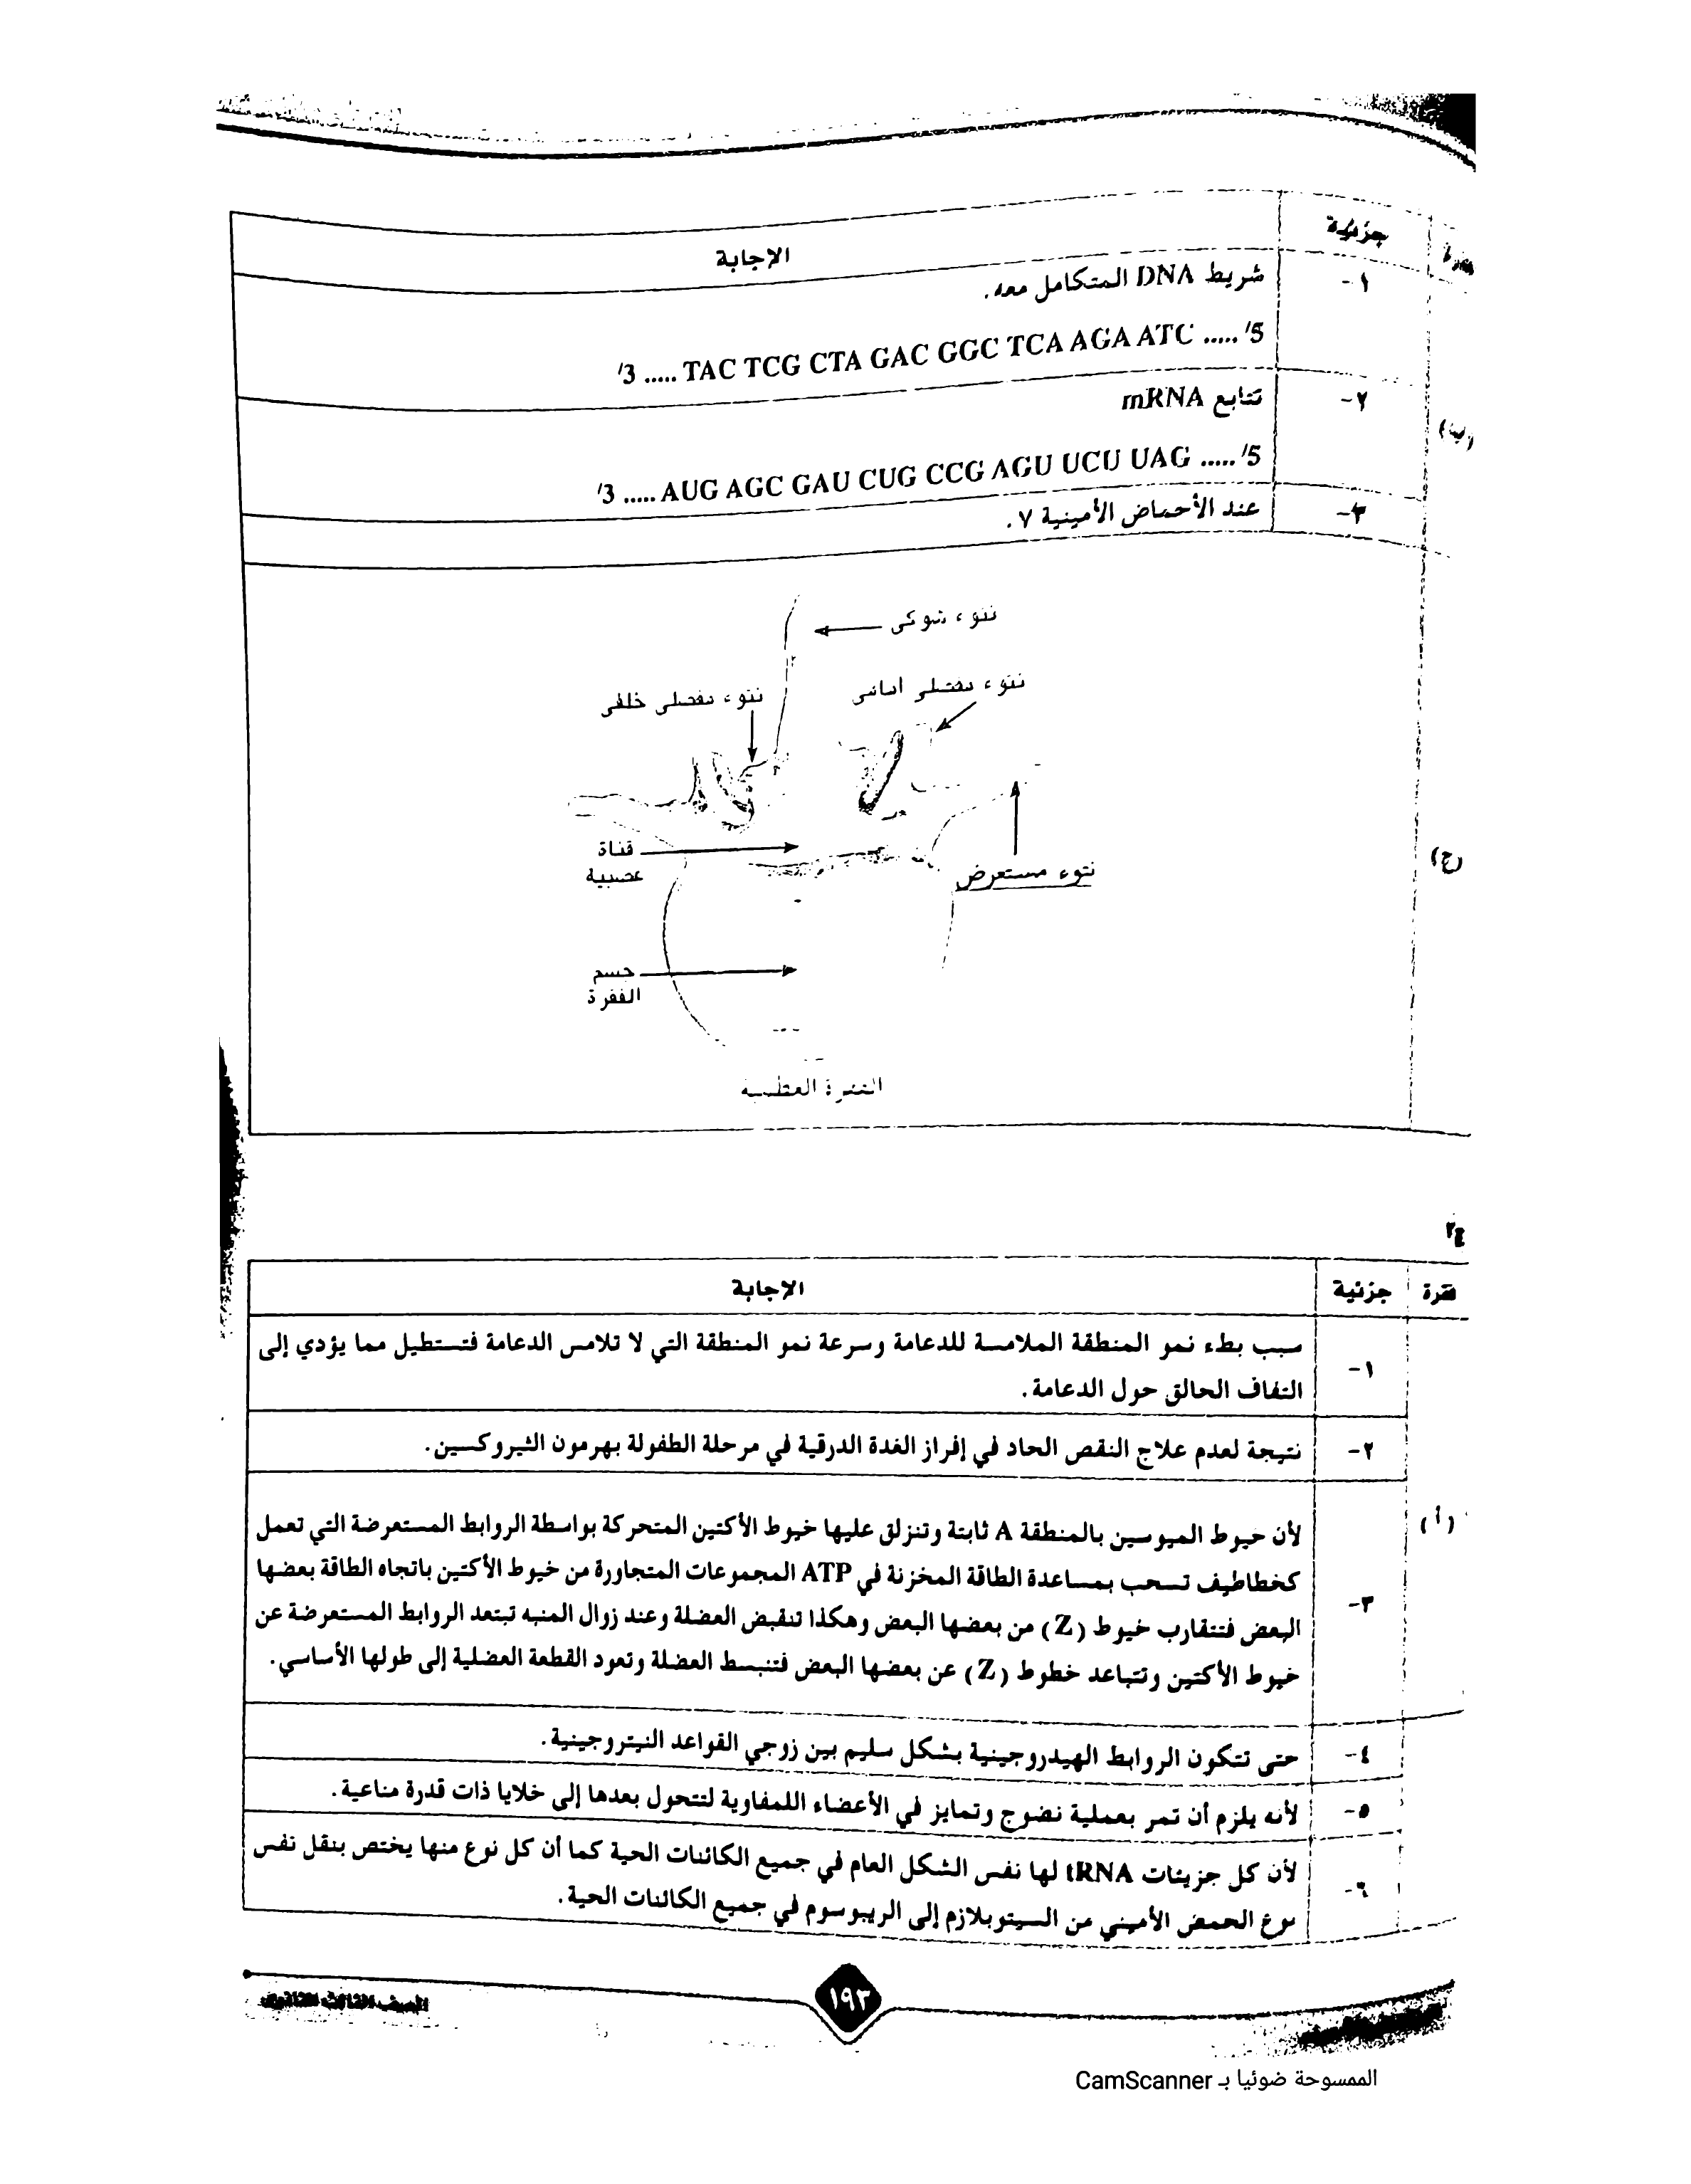 جزئية
الإجابة
١-
شريط DNA المتكامل معه.
3/ ..... TAC TCG CTA GAC GGC TCA AGA ATC ..... 5/
٢-
تتابع mRNA
(ب)
3/ ..... AUG AGC GAU CUG CCG AGU UCU UAG ..... 5/
٣-
عند الأحماض الأمينية ٧.
نتوء شوكى
نتوء مفصلى أمامى
نتوء مفصلى خلفى
قناة
عصبية
نتوء مستعرض
(ج)
جسم
الفقرة
الفقرة العظمية
ج٢
فقرة
جزئية
الإجابة
(أ)
١-
سبب بطء نمو المنطقة الملامسة للدعامة وسرعة نمو المنطقة التي لا تلامس الدعامة فتستطيل مما يؤدي إلى
التفاف الحالق حول الدعامة.
٢-
نتيجة لعدم علاج النقص الحاد في إفراز الغدة الدرقية في مرحلة الطفولة بهرمون الثيروكسين.
٣-
لأن خيوط الميوسين بالمنطقة A ثابتة وتنزلق عليها خيوط الأكتين المتحركة بواسطة الروابط المستعرضة التي تعمل
كخطاطيف تسحب بمساعدة الطاقة المخزنة في ATP المجموعات المتجاورة من خيوط الأكتين باتجاه الطاقة بعضها
البعض فتتقارب خيوط (Z) من بعضها البعض وهكذا تنقبض العضلة وعند زوال المنبه تبتعد الروابط المستعرضة عن
خيوط الأكتين وتتباعد خطوط (Z) عن بعضها البعض فتنبسط العضلة وتعود القطعة العضلية إلى طولها الأساسي.
٤-
حتى تتكون الروابط الهيدروجينية بشكل سليم بين زوجي القواعد النيتروجينية.
٥-
لأنه يلزم أن تمر بعملية نضوج وتمايز في الأعضاء اللمفاوية لتتحول بعدها إلى خلايا ذات قدرة مناعية.
٦-
لأن كل جزيئات tRNA لها نفس الشكل العام في جميع الكائنات الحية كما أن كل نوع منها يختص بنقل نفس
نوع الحمض الأميني من السيتوبلازم إلى الريبوسوم في جميع الكائنات الحية.
١٩٣
الصف الثالث الثانوي
الممسوحة ضوئيا بـ CamScanner